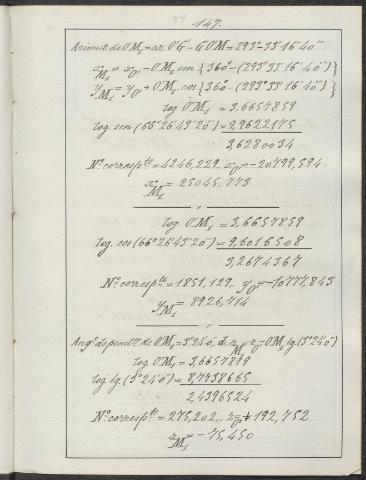 147.
Azimut de O'M₁ = az. O'G' - G'O'M = 293°-33'16'40'''
x_M₁ = x_O' - O'M₁ sen {360° - (293°33'16'40'')}
y_M₁ = y_O' + O'M₁ cos {360° - (293°33'16'40'')}
log O'M₁ = 3,6657859
log. sen (66°26'43'20'') = 9,9622175
3,6280034
Nº corresp.te = 4246,229.. x_O' = -20799,594
x_M₁ = 25045,773
"
log. O'M₁ = 3,6657859
log. cos (66°26'43'20'') = 9,6016508
3,2674367
Nº corresp.te = 1851,129.. y_O' = -10777,843
y_M₁ = 8926,714
"
Ang.º de pend.te de O'M₁ = 3°24'0'' d. z_M₁ = z_O' - O'M₁ tg. (3°24'0'')
log. O'M₁ = 3,6657859
log. tg. (3°24'0'') = 8,7738665
2,4396524
Nº corresp.te = 275,202.. z_O' = + 192,752
z_M₁ = -75,450